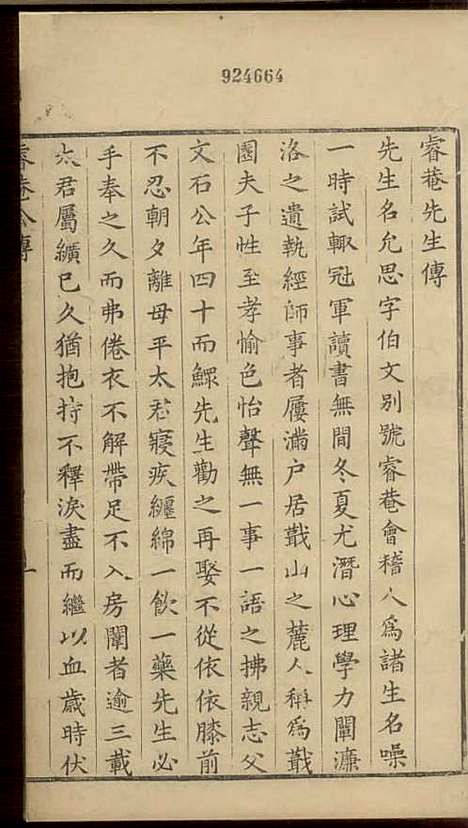 924664
睿菴先生傳
先生名允思字伯文别號睿菴會稽人爲諸生名噪
一時試輒冠軍讀書無間冬夏尤潛心理學力闡濂
洛之遺執經師事者屨滿户居蕺山之麓人稱爲蕺
園夫子性至孝愉色怡聲無一事一語之拂親志父
文石公年四十而鰥先生勸之再娶不從依依膝前
不忍朝夕離母平太君寢疾纏綿一飲一藥先生必
手奉之久而弗倦衣不解帶足不入房闈者逾三載
太君屬纊已久猶抱持不釋淚盡而繼以血歲時伏
睿菴公傳
一